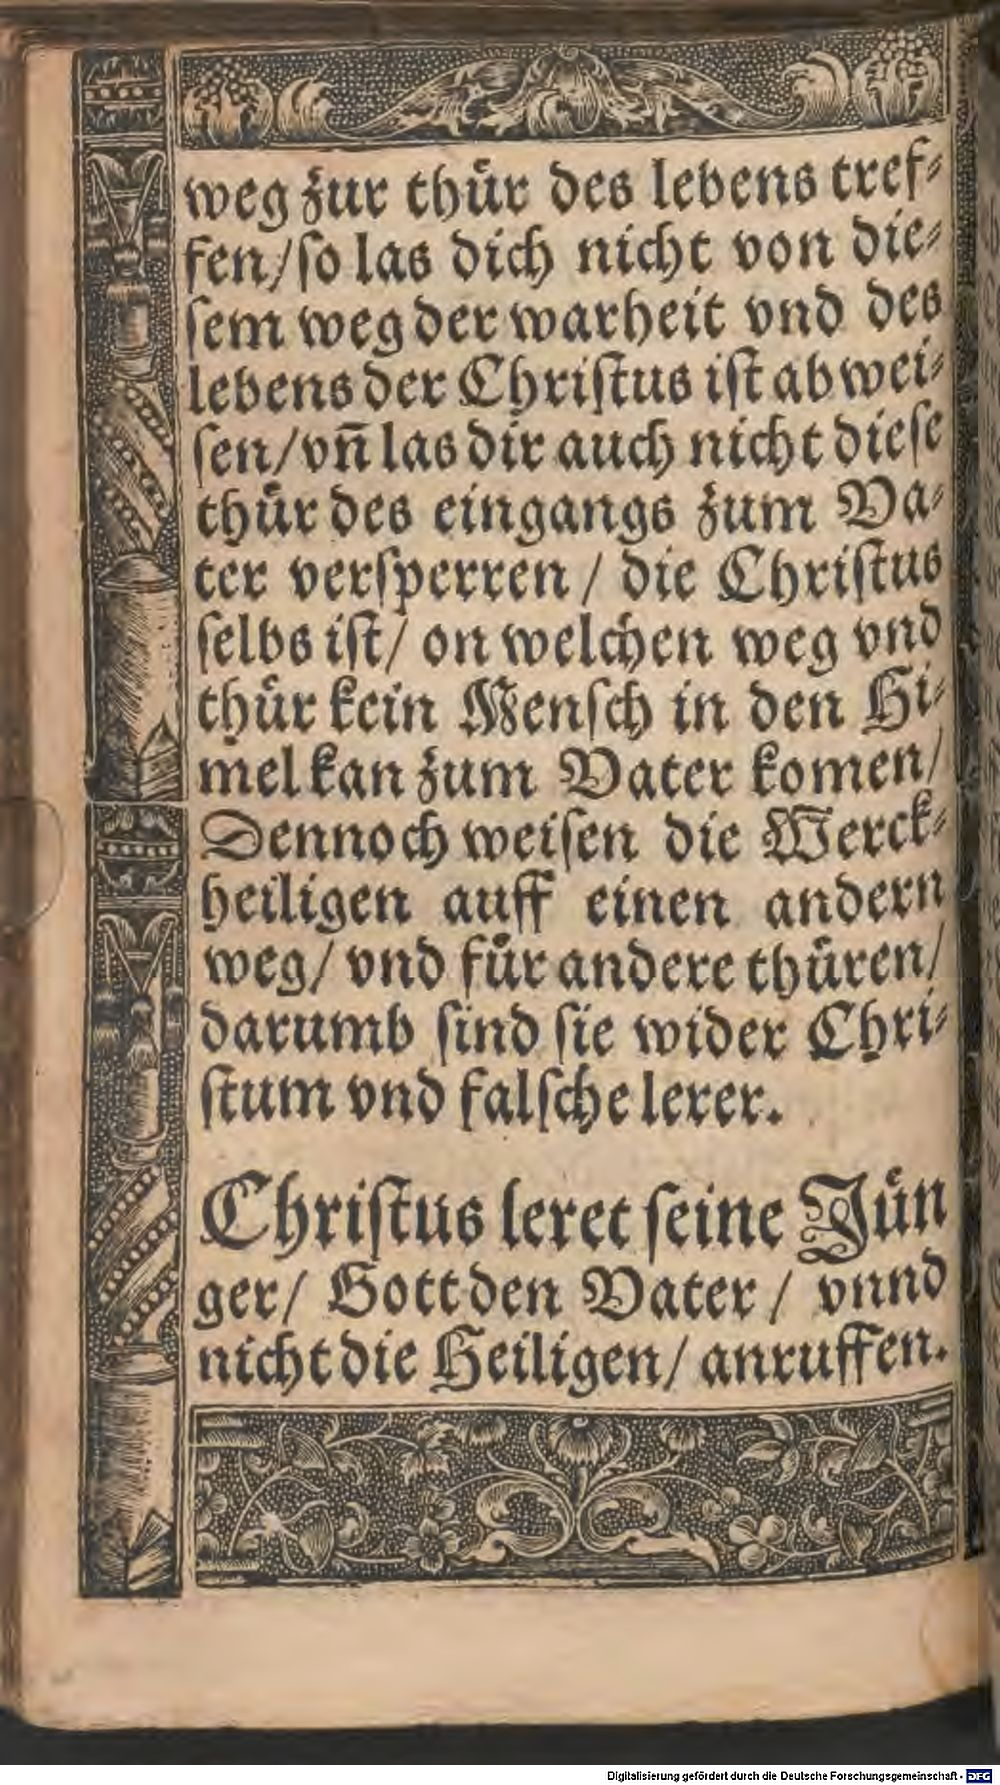 weg zur thuͤr des lebens tref⸗
fen/ ſo las dich nicht von die⸗
ſem weg der warheit vnd des
lebens der Chriſtus iſt abwei⸗
ſen/ vn̄ las dir auch nicht dieſe
thuͤr des eingangs zum Va⸗
ter verſperren / die Chriſtus
ſelbs iſt/ on welchen weg vnd
thuͤr kein Menſch in den Hi⸗
mel kan zum Vater komen/
Dennoch weiſen die Werck⸗
heiligen auff einen andern
weg/ vnd fuͤr andere thuͤren/
darumb ſind ſie wider Chri⸗
ſtum vnd falſche lerer.
Chriſtus leret ſeine Juͤn
ger/ Gott den Vater / vnnd
nicht die Heiligen/ anruffen.
Digitalisierung gefördert durch die Deutsche Forschungsgemeinschaft - DFG